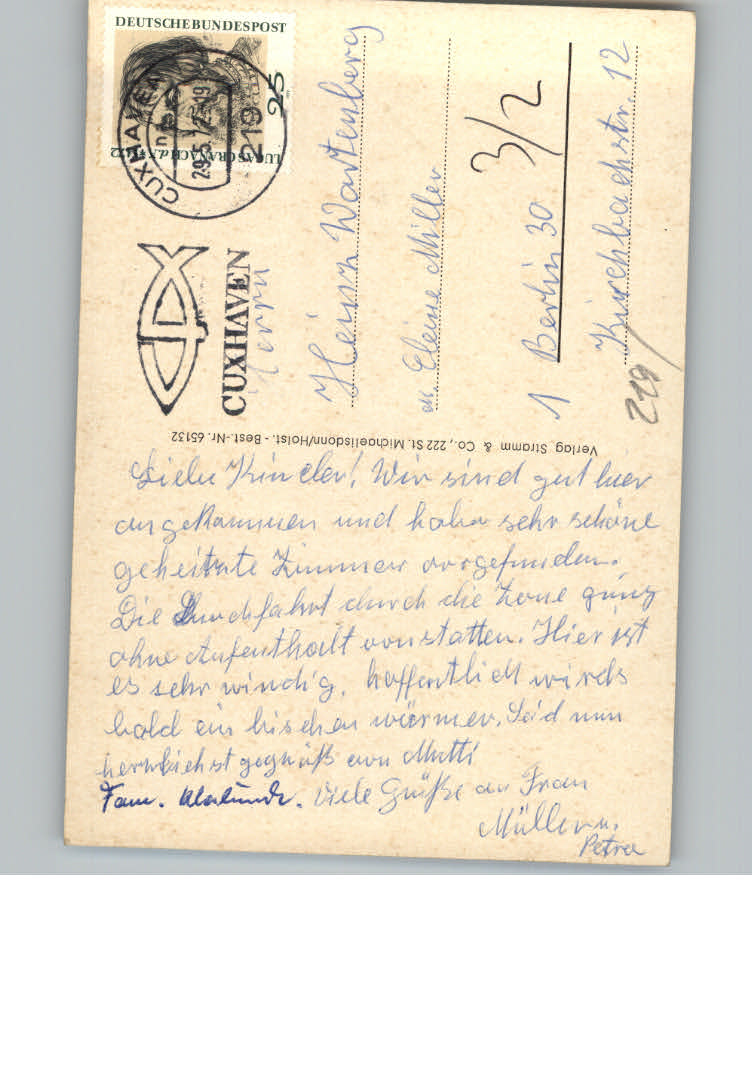 DEUTSCHE BUNDESPOST
25
LUCAS CRANACH d.Ä.
CUXHAVEN
219
CUXHAVEN
Herrn
Heinz Wartenberg
3/2
1 Berlin 30
Kirchbachstr. 12
219
Verlag Stramm & Co., 222 St. Michaelisdonn/Holst. - Best.-Nr. 65132
Liebe Kinder! Wir sind gut hier
angekommen und habe sehr schöne
geheitzte Zimmer vorgefunden.
Die Durchfahrt durch die Zone ging
ohne Aufenthalt vonstatten. Hier ist
es sehr windig, hoffentlich wirds
bald ein bischen wärmer. Seid nun
herzlichst gegrüßt von Mutti
Fam. Viele Grüße an Frau
Müller u.
Petra